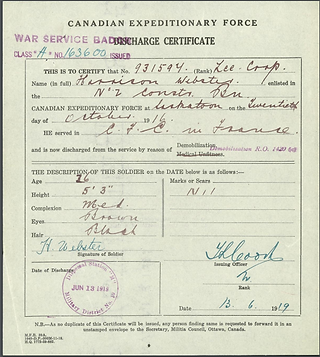 CANADIAN EXPEDITIONARY FORCE
WAR SERVICE BADGE
DISCHARGE CERTIFICATE
CLASS "A" No. 163600 ISSUED
THIS IS TO CERTIFY that No. 931594 (Rank) Lce. Corp.
Name (in full) Harrison Webster enlisted in
the No 2 Constr. Bn.
CANADIAN EXPEDITIONARY FORCE at Saskatoon on the Twentieth
day of October 1916
HE served in C.F.C. in France
and is now discharged from the service by reason of Demobilization, Demobilization R.O. 1420
Medical Unfitness.
THE DESCRIPTION OF THIS SOLDIER on the DATE below is as follows:—
Age 26
Marks or Scars
Height 5' 3"
Nil
Complexion Med.
Eyes Brown
Hair Black
H. Webster
Signature of Soldier
Issuing Officer
Date of Discharge
JUN 13 1919
Military District
Date 13.6. 1919
N.B.—As no duplicate of this Certificate will be issued, any person finding same is requested to forward it in an
unstamped envelope to the Secretary, Militia Council, Ottawa, Canada.